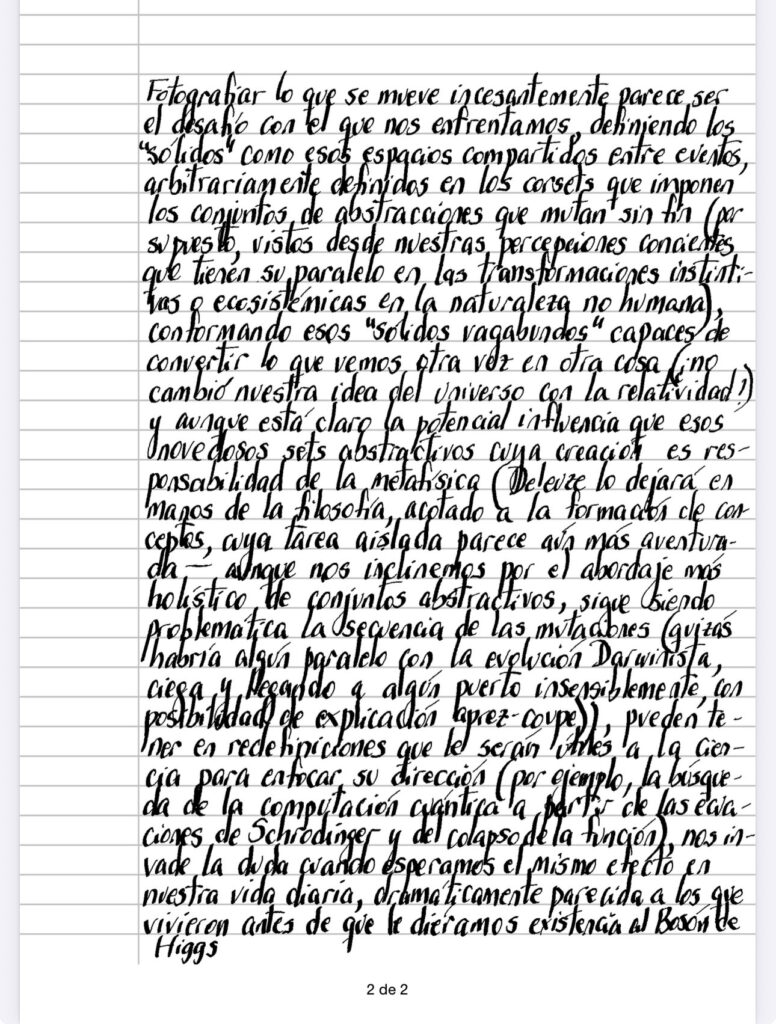 Fotografiar lo que se mueve incesantemente parece ser
el desafío con el que nos enfrentamos, definiendo los
"sólidos" como esos espacios compartidos entre eventos,
arbitrariamente definidos en los corsets que imponen
los conjuntos de abstracciones que mutan sin fin (por
supuesto, vistos desde nuestras percepciones concientes
que tienen su paralelo en las transformaciones instinti-
vas o ecosistémicas en la naturaleza no humana),
conformando esos "sólidos vagabundos" capaces de
convertir lo que vemos otra vez en otra cosa (¡no
cambió nuestra idea del universo con la relatividad!)
y aunque está claro la potencial influencia que esos
novedosos sets abstractivos cuya creación es res-
ponsabilidad de la metafísica (Deleuze lo dejará en
manos de la filosofía, acotado a la formación de con
ceptos, cuya tarea aislada parece aún más aventura-
da — aunque nos inclinemos por el abordaje más
holístico de conjuntos abstractivos, sigue siendo
problemática la secuencia de las mutaciones (quizás
habría algún paralelo con la evolución Darwinista,
ciega y llegando a algún puerto insensiblemente, con
posibilidad de explicación aprez-coupe)), pueden te-
ner en redefiniciones que le serán útiles a la cien-
cia para enfocar su dirección (por ejemplo, la búsque-
da de la computación cuántica a partir de las ecua-
ciones de Schrodinger y del colapso de la función), nos in-
vade la duda cuando esperamos el mismo efecto en
nuestra vida diaria, dramáticamente parecida a los que
vivieron antes de que le diéramos existencia al Bosón de
Higgs
2 de 2